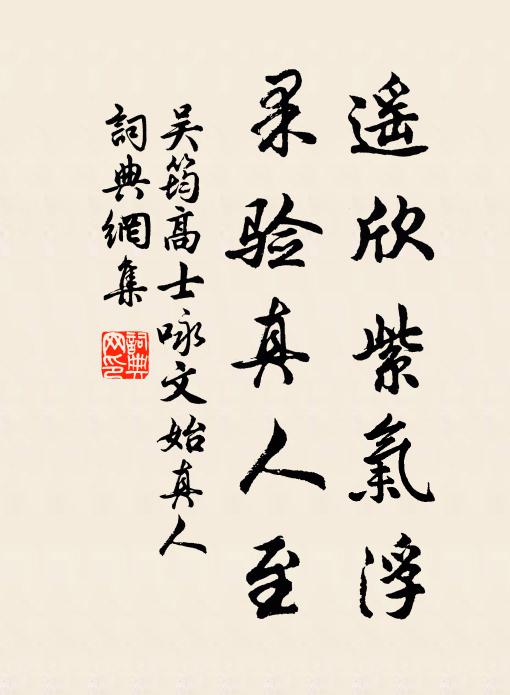 遥欣紫氣浮
果验真人至
吴筠高士咏文始真人
詞典網集
詞典网印